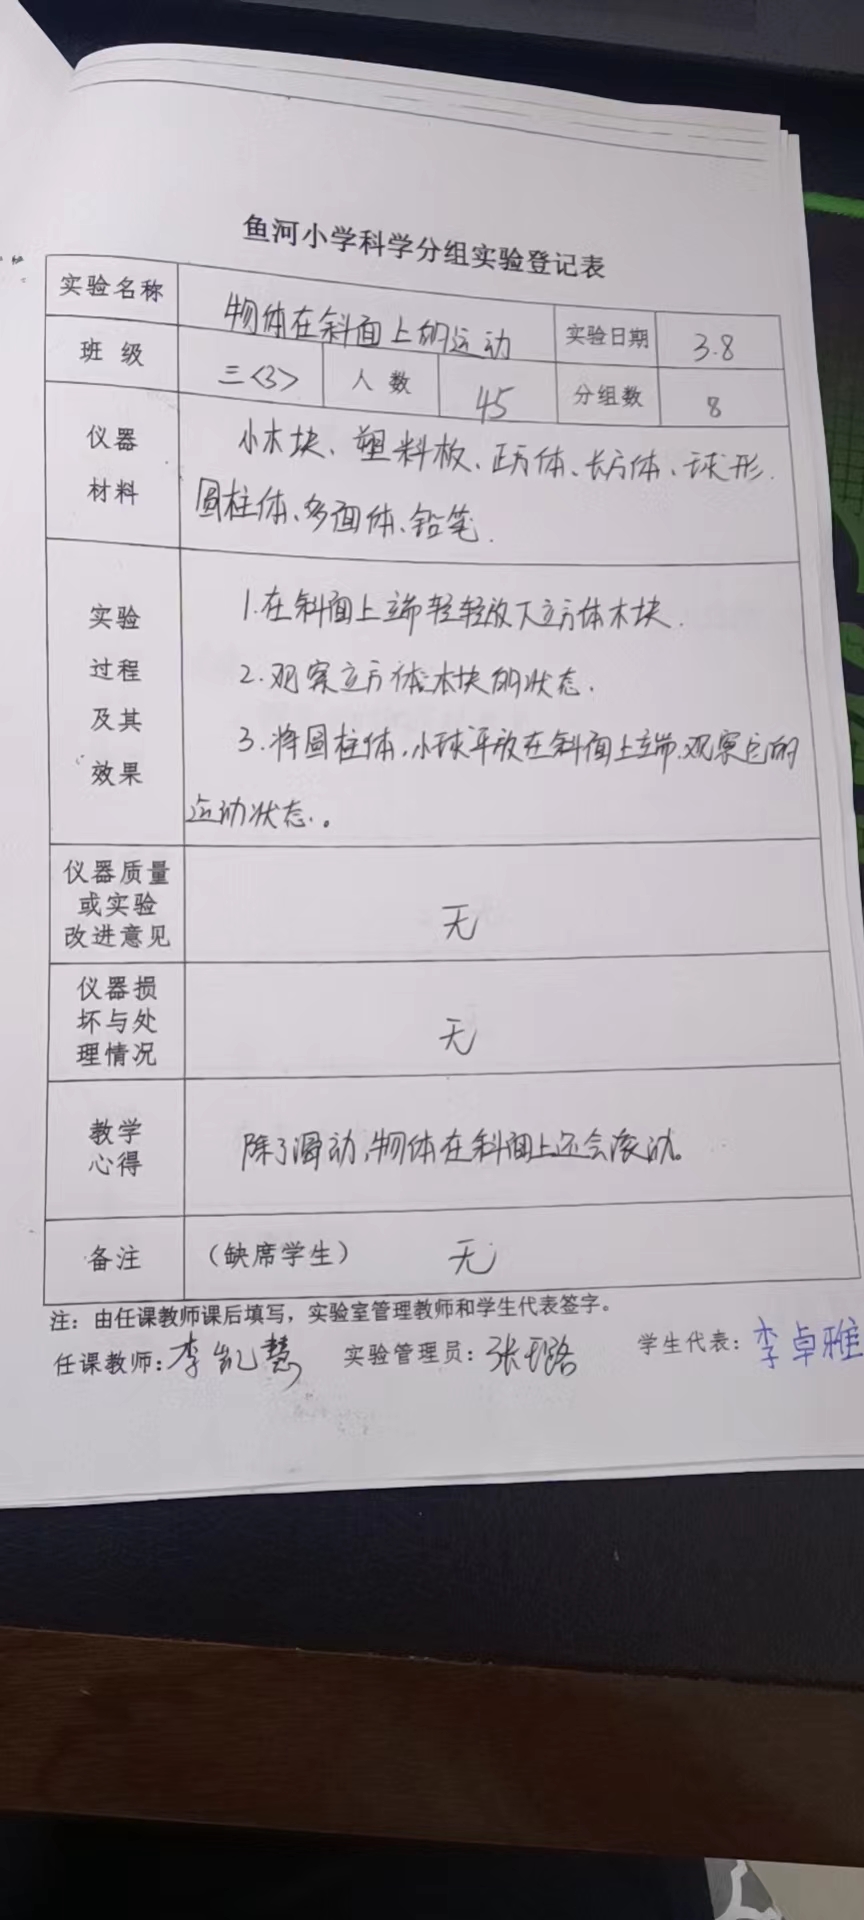 鱼河小学科学分组实验登记表
实验名称 物体在斜面上的运动 实验日期 3.8
班级 三<3> 人数 45 分组数 8
仪器
材料
小木块、塑料板、正方体、长方体、球形.
圆柱体、多面体、铅笔.
实验
过程
及其
效果
1.在斜面上端轻轻放下立方体木块.
2.观察立方体木块的状态.
3.将圆柱体,小球平放在斜面上端,观察它的
运动状态.。
仪器质量
或实验
改进意见
无
仪器损
坏与处
理情况
无
教学
心得
除了滑动,物体在斜面上还会滚动。
备注 (缺席学生) 无
注:由任课教师课后填写,实验室管理教师和学生代表签字。
任课教师:李凯慧 实验管理员:张 学生代表:李卓雅